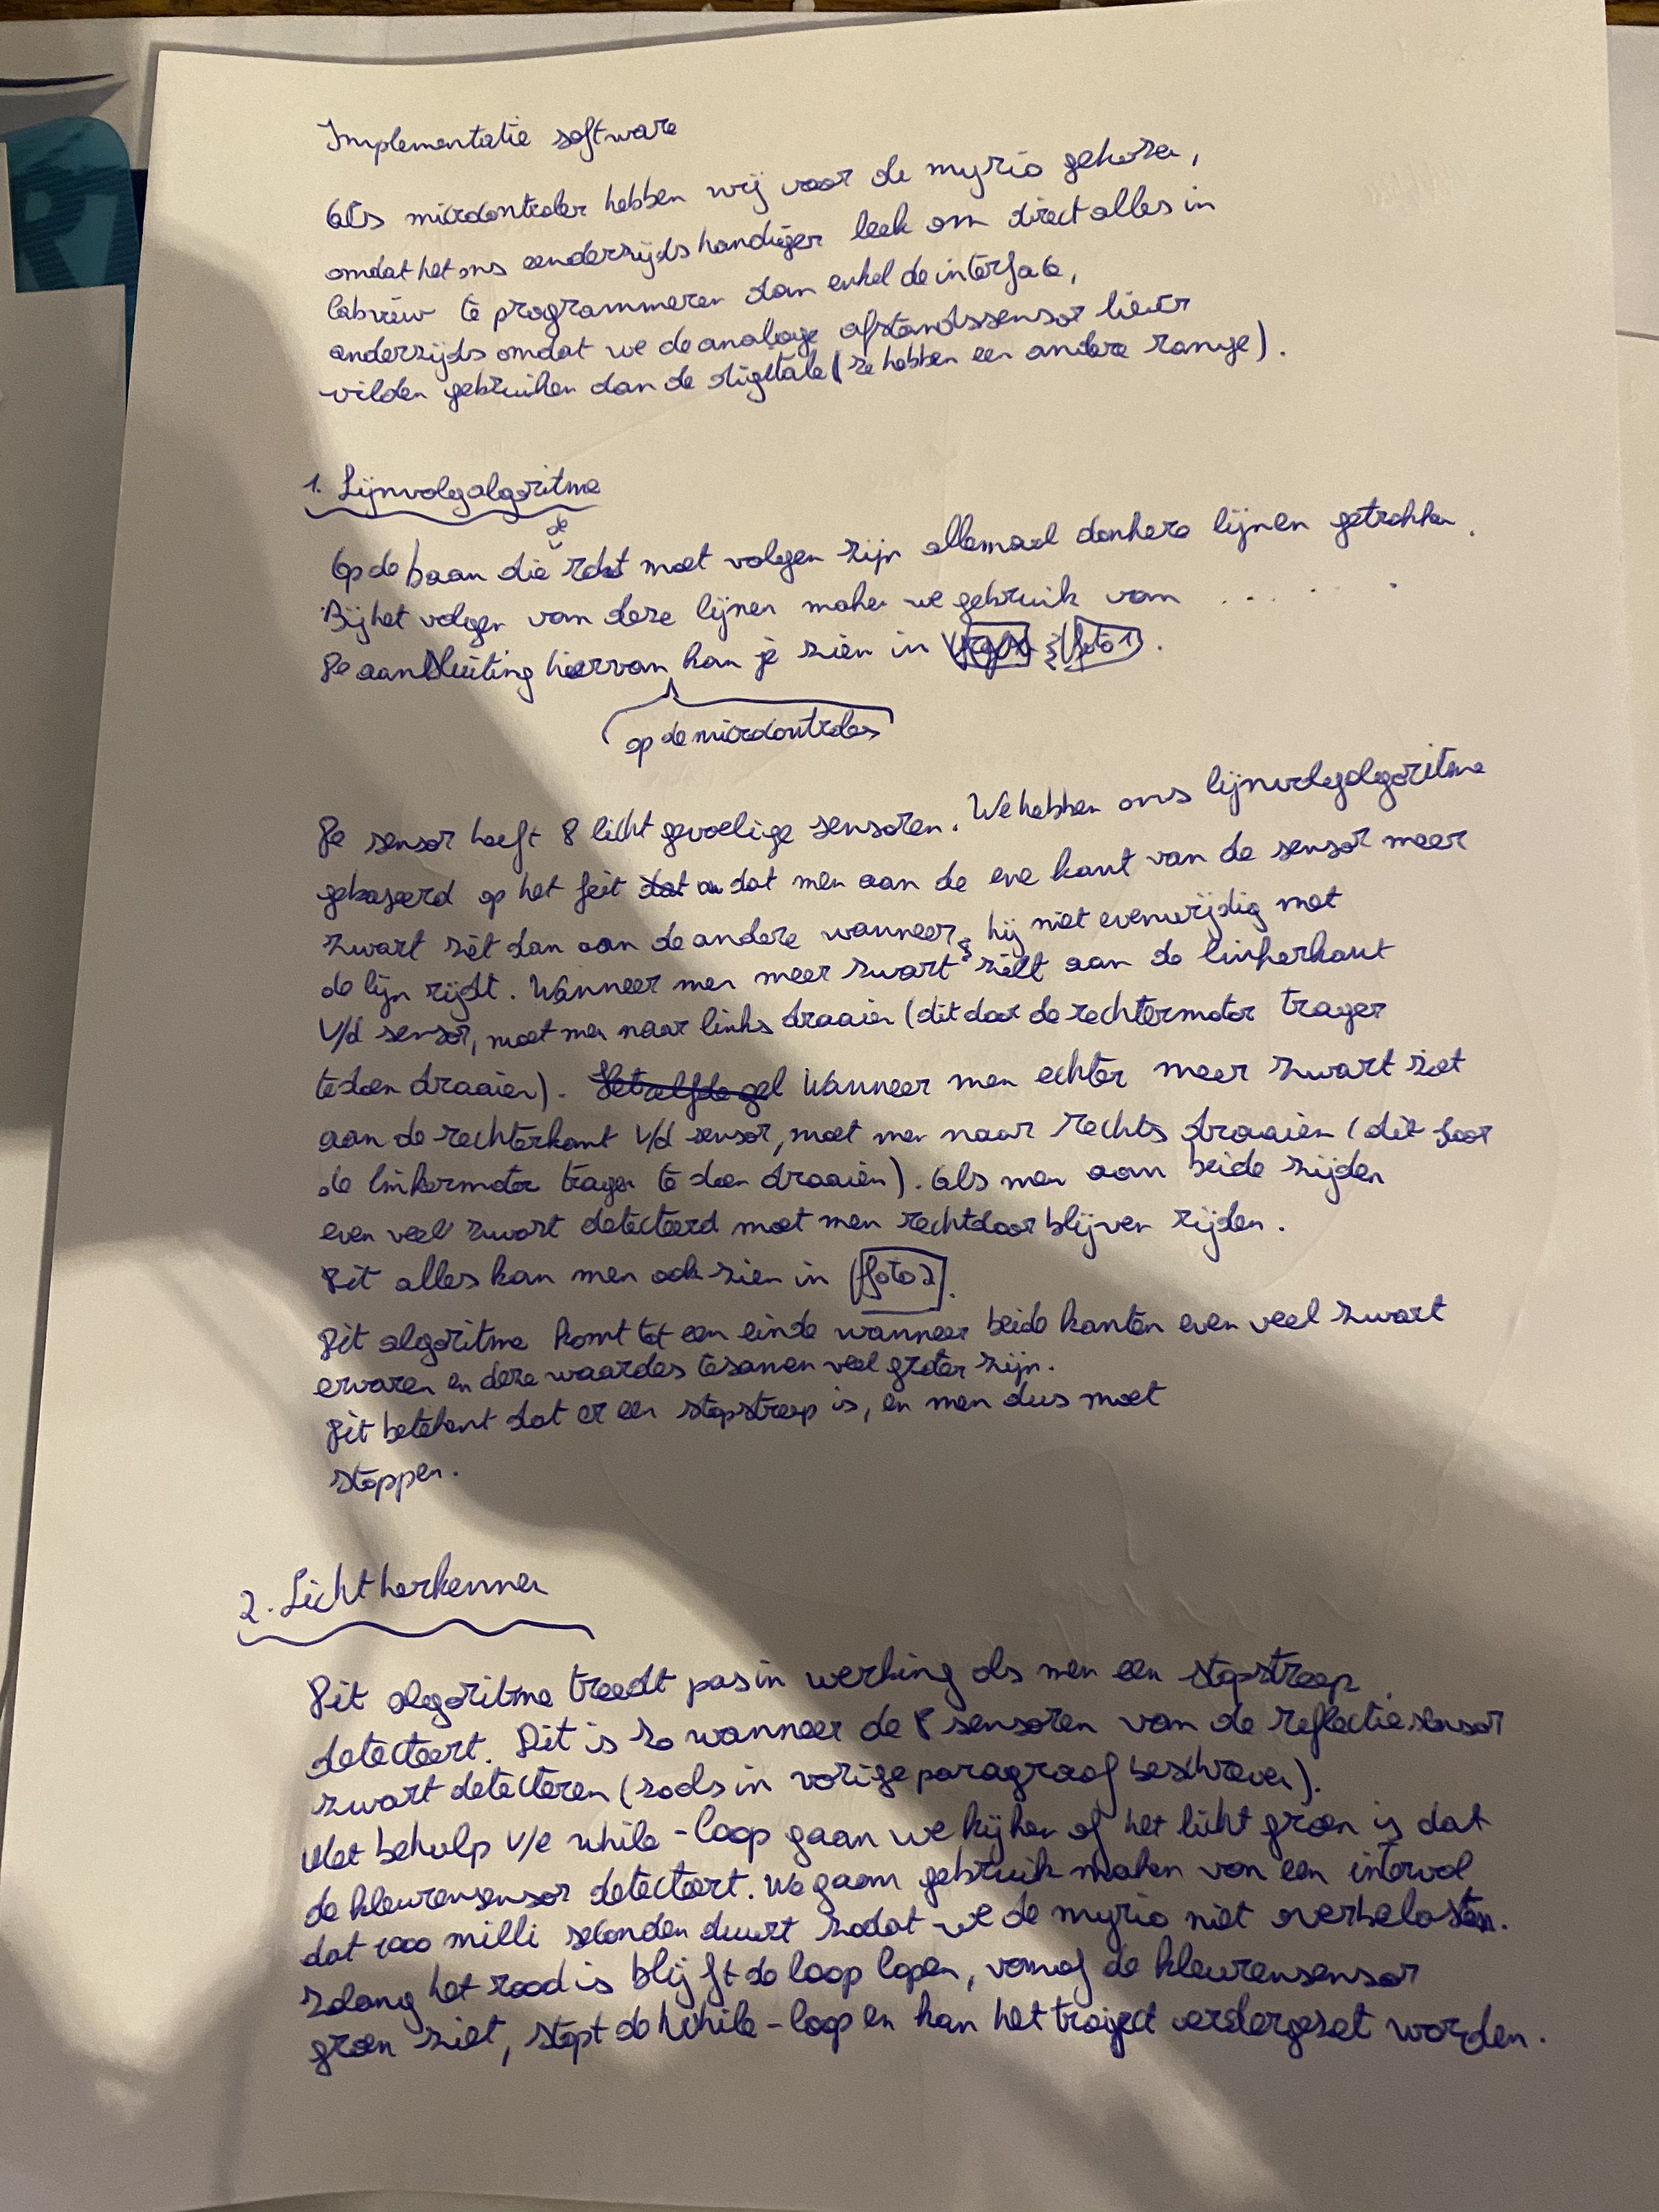 Implementatie software
Als microcontroler hebben wij voor de myrio gekozen,
omdat het ons eenderzijds handiger leek om direct alles in
labview te programmeren dan enkel de interface,
anderzijds omdat we de analoge afstandssensor liever
wilden gebruiken dan de digitale (ze hebben een andere range).
1. Lijnvolgalgoritme
de
Op de baan die robot moet volgen zijn allemaal donkere lijnen getrokken.
Bij het volgen van deze lijnen maken we gebruik van ......
De aansluiting hiervan kan je zien in (foto 1).
op de microcontroler
De sensor heeft 8 licht gevoelige sensoren. We hebben ons lijnvolgalgoritme
gebaseerd op het feit dat men aan de ene kant van de sensor meer
zwart ziet dan aan de andere wanneer hij niet evenwijdig met
de lijn rijdt. Wanneer men meer zwart ziet aan de linkerkant
v/d sensor, moet men naar links draaien (dit door de rechtermotor trager
te doen draaien). Wanneer men echter meer zwart ziet
aan de rechterkant v/d sensor, moet men naar rechts draaien (dit door
de linkermotor trager te doen draaien). Als men aan beide zijden
even veel zwart detecteerd moet men rechtdoor blijven rijden.
Dit alles kan men ook zien in (foto 2).
Dit algoritme komt tot een einde wanneer beide kanten even veel zwart
ervaren en deze waardes tesamen veel groter zijn.
Dit betekent dat er een stopstreep is, en men dus moet
stoppen.
2. Licht herkennen
Dit algoritme treedt pas in werking als men een stopstreep
detecteert. Dit is zo wanneer de 8 sensoren van de reflectiesensor
zwart detecteren (zoals in vorige paragraaf beschreven).
Met behulp v/e while-loop gaan we kijken of het licht groen is dat
de kleurensensor detecteert. We gaan gebruik maken van een interval
dat 1000 milli seconden duurt zodat we de myrio niet overbelasten.
Zolang het rood is blijft de loop lopen, vanaf de kleurensensor
groen ziet, stopt de while-loop en kan het traject verdergezet worden.